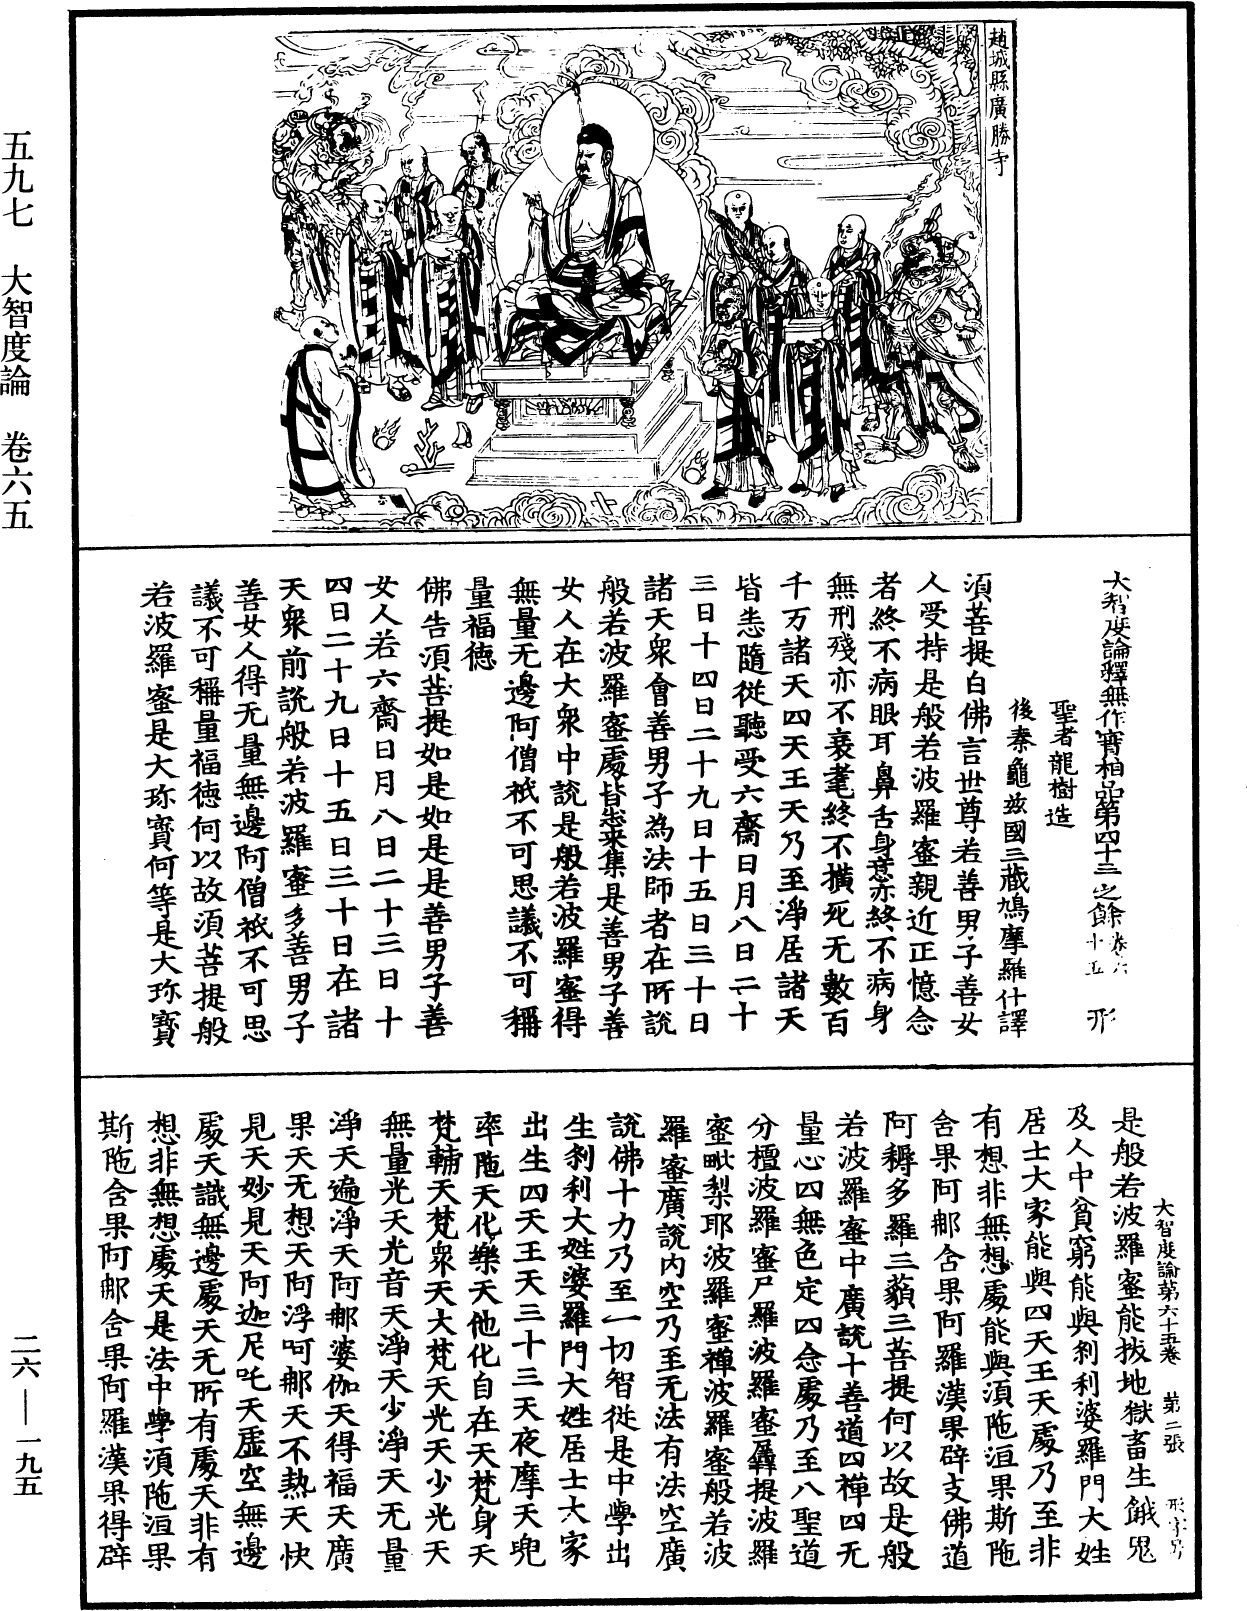 五九七　大智度論　卷六五
趙城縣廣勝寺
大智度論釋無作實相品第四十三之餘 卷六十五　形
聖者龍樹造
後秦龜兹國三藏鳩摩羅什譯
須菩提白佛言世尊若善男子善女
人受持是般若波羅蜜親近正憶念
者終不病眼耳鼻舌身意亦終不病身
無刑殘亦不衰耄終不横死无數百
千万諸天四天王天乃至淨居諸天
皆悉隨從聽受六齋日月八日二十
三日十四日二十九日十五日三十日
諸天衆會善男子為法師者在所說
般若波羅蜜處皆悉来集是善男子善
女人在大衆中說是般若波羅蜜得
無量无邊阿僧祇不可思議不可稱
量福徳
佛告須菩提如是如是是善男子善
女人若六齋日月八日二十三日十
四日二十九日十五日三十日在諸
天衆前說般若波羅蜜多善男子
善女人得无量無邊阿僧祇不可思
議不可稱量福徳何以故須菩提般
若波羅蜜是大珎寳何等是大珎寳
大智度論第六十五卷　第二張　形字号
是般若波羅蜜能拔地獄畜生餓鬼
及人中貧窮能與刹利婆羅門大姓
居士大家能與四天王天處乃至非
有想非無想處能與須陁洹果斯陁
含果阿那含果阿羅漢果辟支佛道
阿耨多羅三藐三菩提何以故是般
若波羅蜜中廣說十善道四禪四无
量心四無色定四念處乃至八聖道
分檀波羅蜜尸羅波羅蜜羼提波羅
蜜毗梨耶波羅蜜禪波羅蜜般若波
羅蜜廣說内空乃至无法有法空廣
說佛十力乃至一切智從是中學出
生刹利大姓婆羅門大姓居士大家
出生四天王天三十三天夜摩天兜
率陁天化樂天他化自在天梵身天
梵輔天梵衆天大梵天光天少光天
無量光天光音天淨天少淨天无量
淨天遍淨天阿那婆伽天得福天廣
果天无想天阿浮呵那天不熱天快
見天妙見天阿迦尼吒天虛空無邊
處天識無邊處天无所有處天非有
想非無想處天是法中學須陁洹果
斯陁含果阿那含果阿羅漢果得辟
二六—一九五